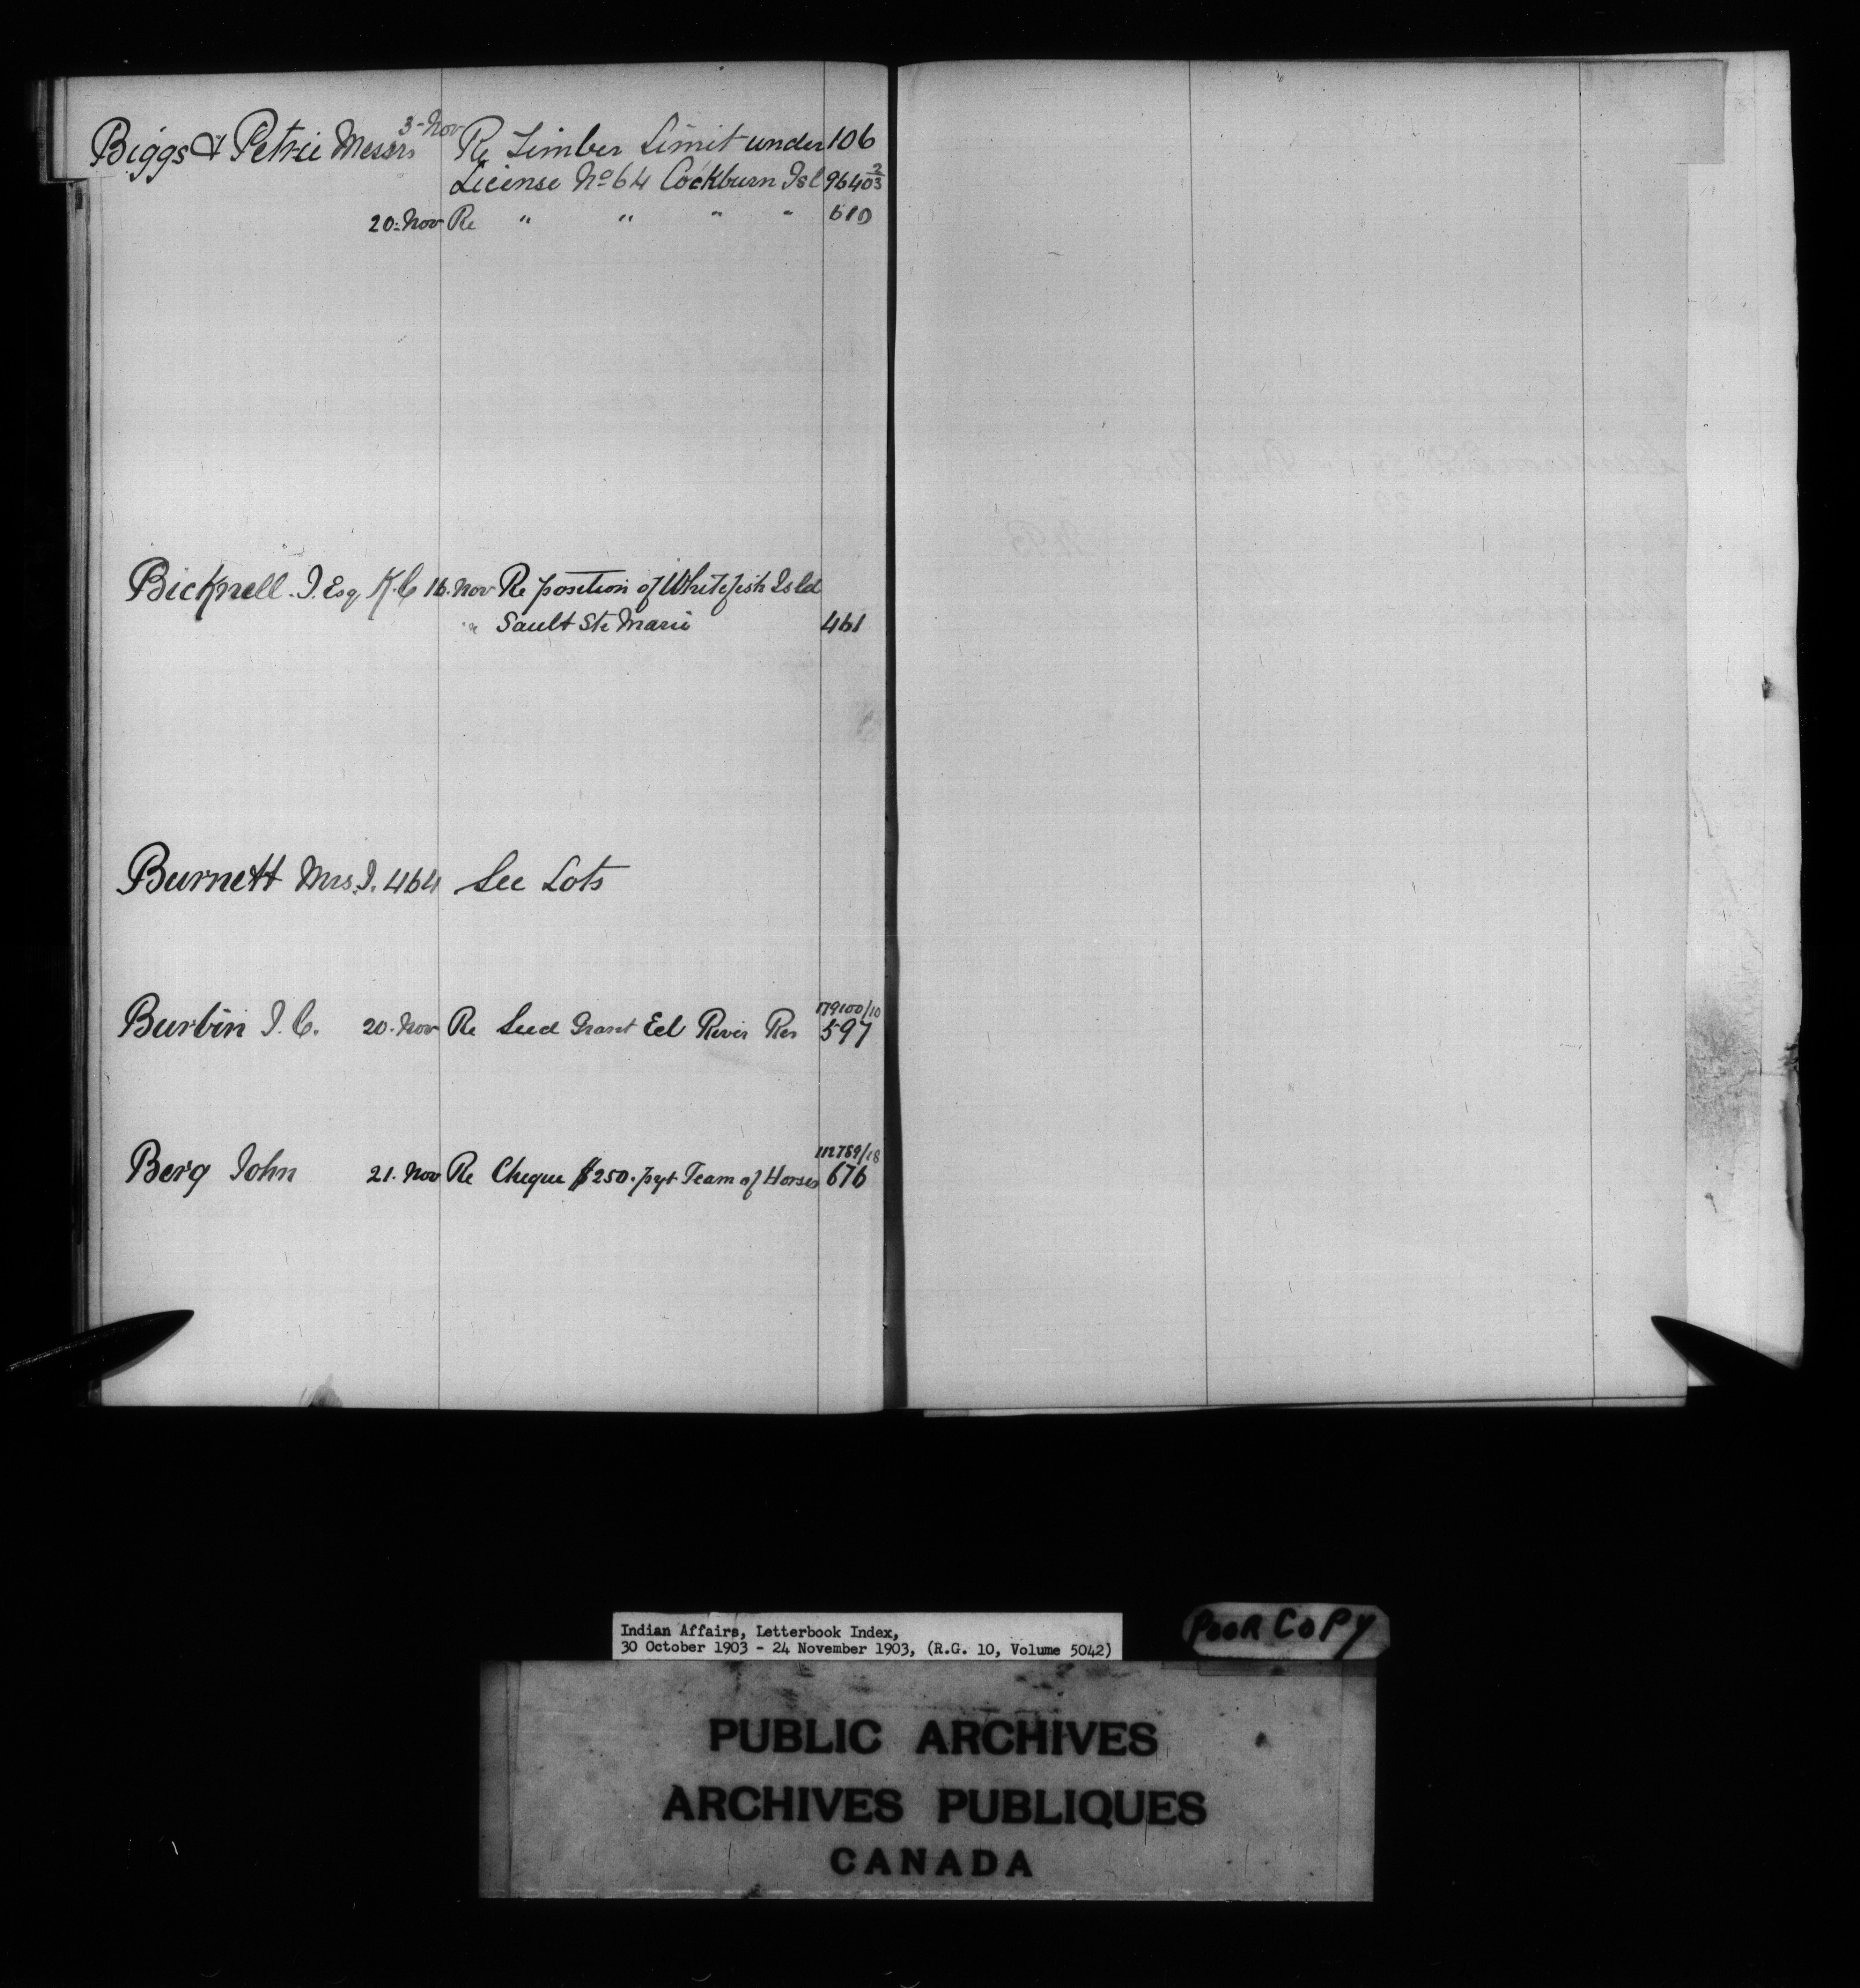 3-Nov
Biggs & Petrie Messrs Re Timber Limit under 106
License No 64 Cockburn Isl 9640 2/3
20-Nov Re " " " " 610
Bicknell J. Esq. K.C. 16. Nov Re position of Whitefish Isld
" Sault Ste Marie 461
Burnett Mrs. J. 464 See Lots
179100/10
Burbin J. C. 20-Nov Re Seed Grant Eel River Res 597
112789/18
Berg John 21. Nov Re Cheque $250. pyt Team of Horses 676
Indian Affairs, Letterbook Index,
30 October 1903 - 24 November 1903, (R.G. 10, Volume 5042)
POOR COPY
PUBLIC ARCHIVES
ARCHIVES PUBLIQUES
CANADA